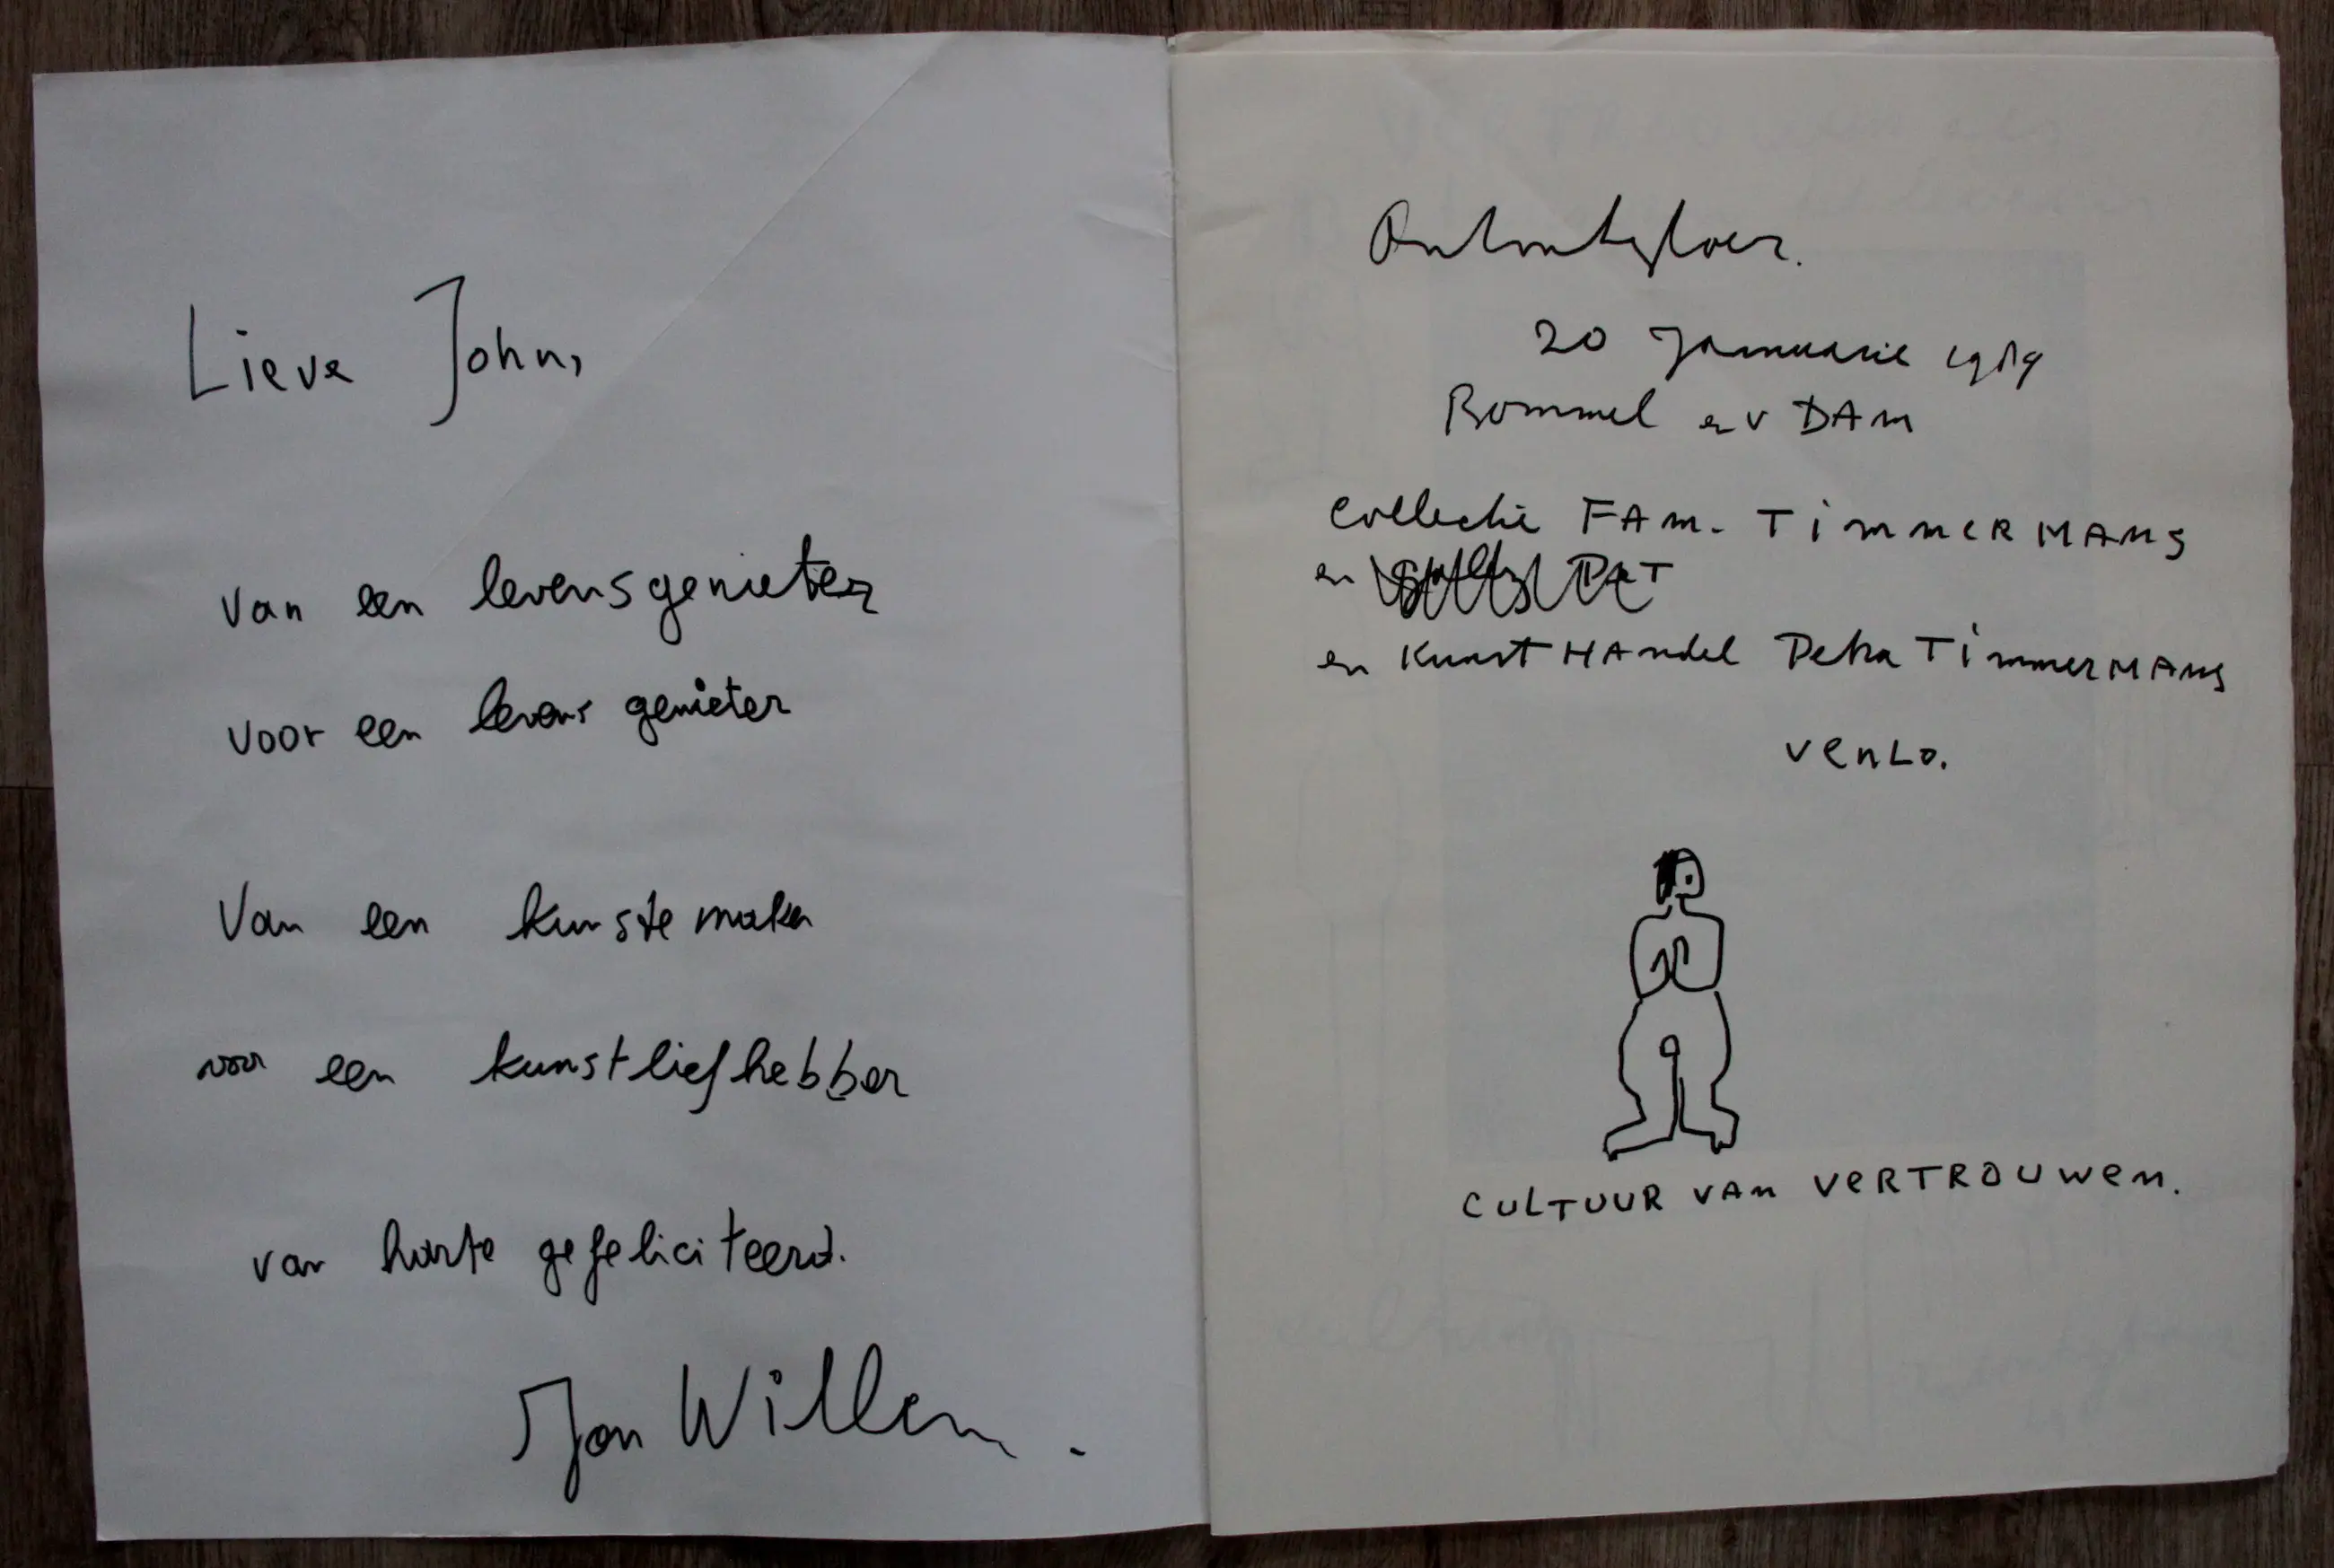 Lieve John,
van een levensgenieter
voor een levensgenieter
Van een kunstemaker
voor een kunstliefhebber
van harte gefeliciteerd.
Jan Willem.
20 Januarie 1989
Bommel en v DAm
Collectie FAm. TimmeRMANS
en
en KunstHAndel Petra TimmerMANS
VenLo.
CULTUUR VAn VeRTROUWen.